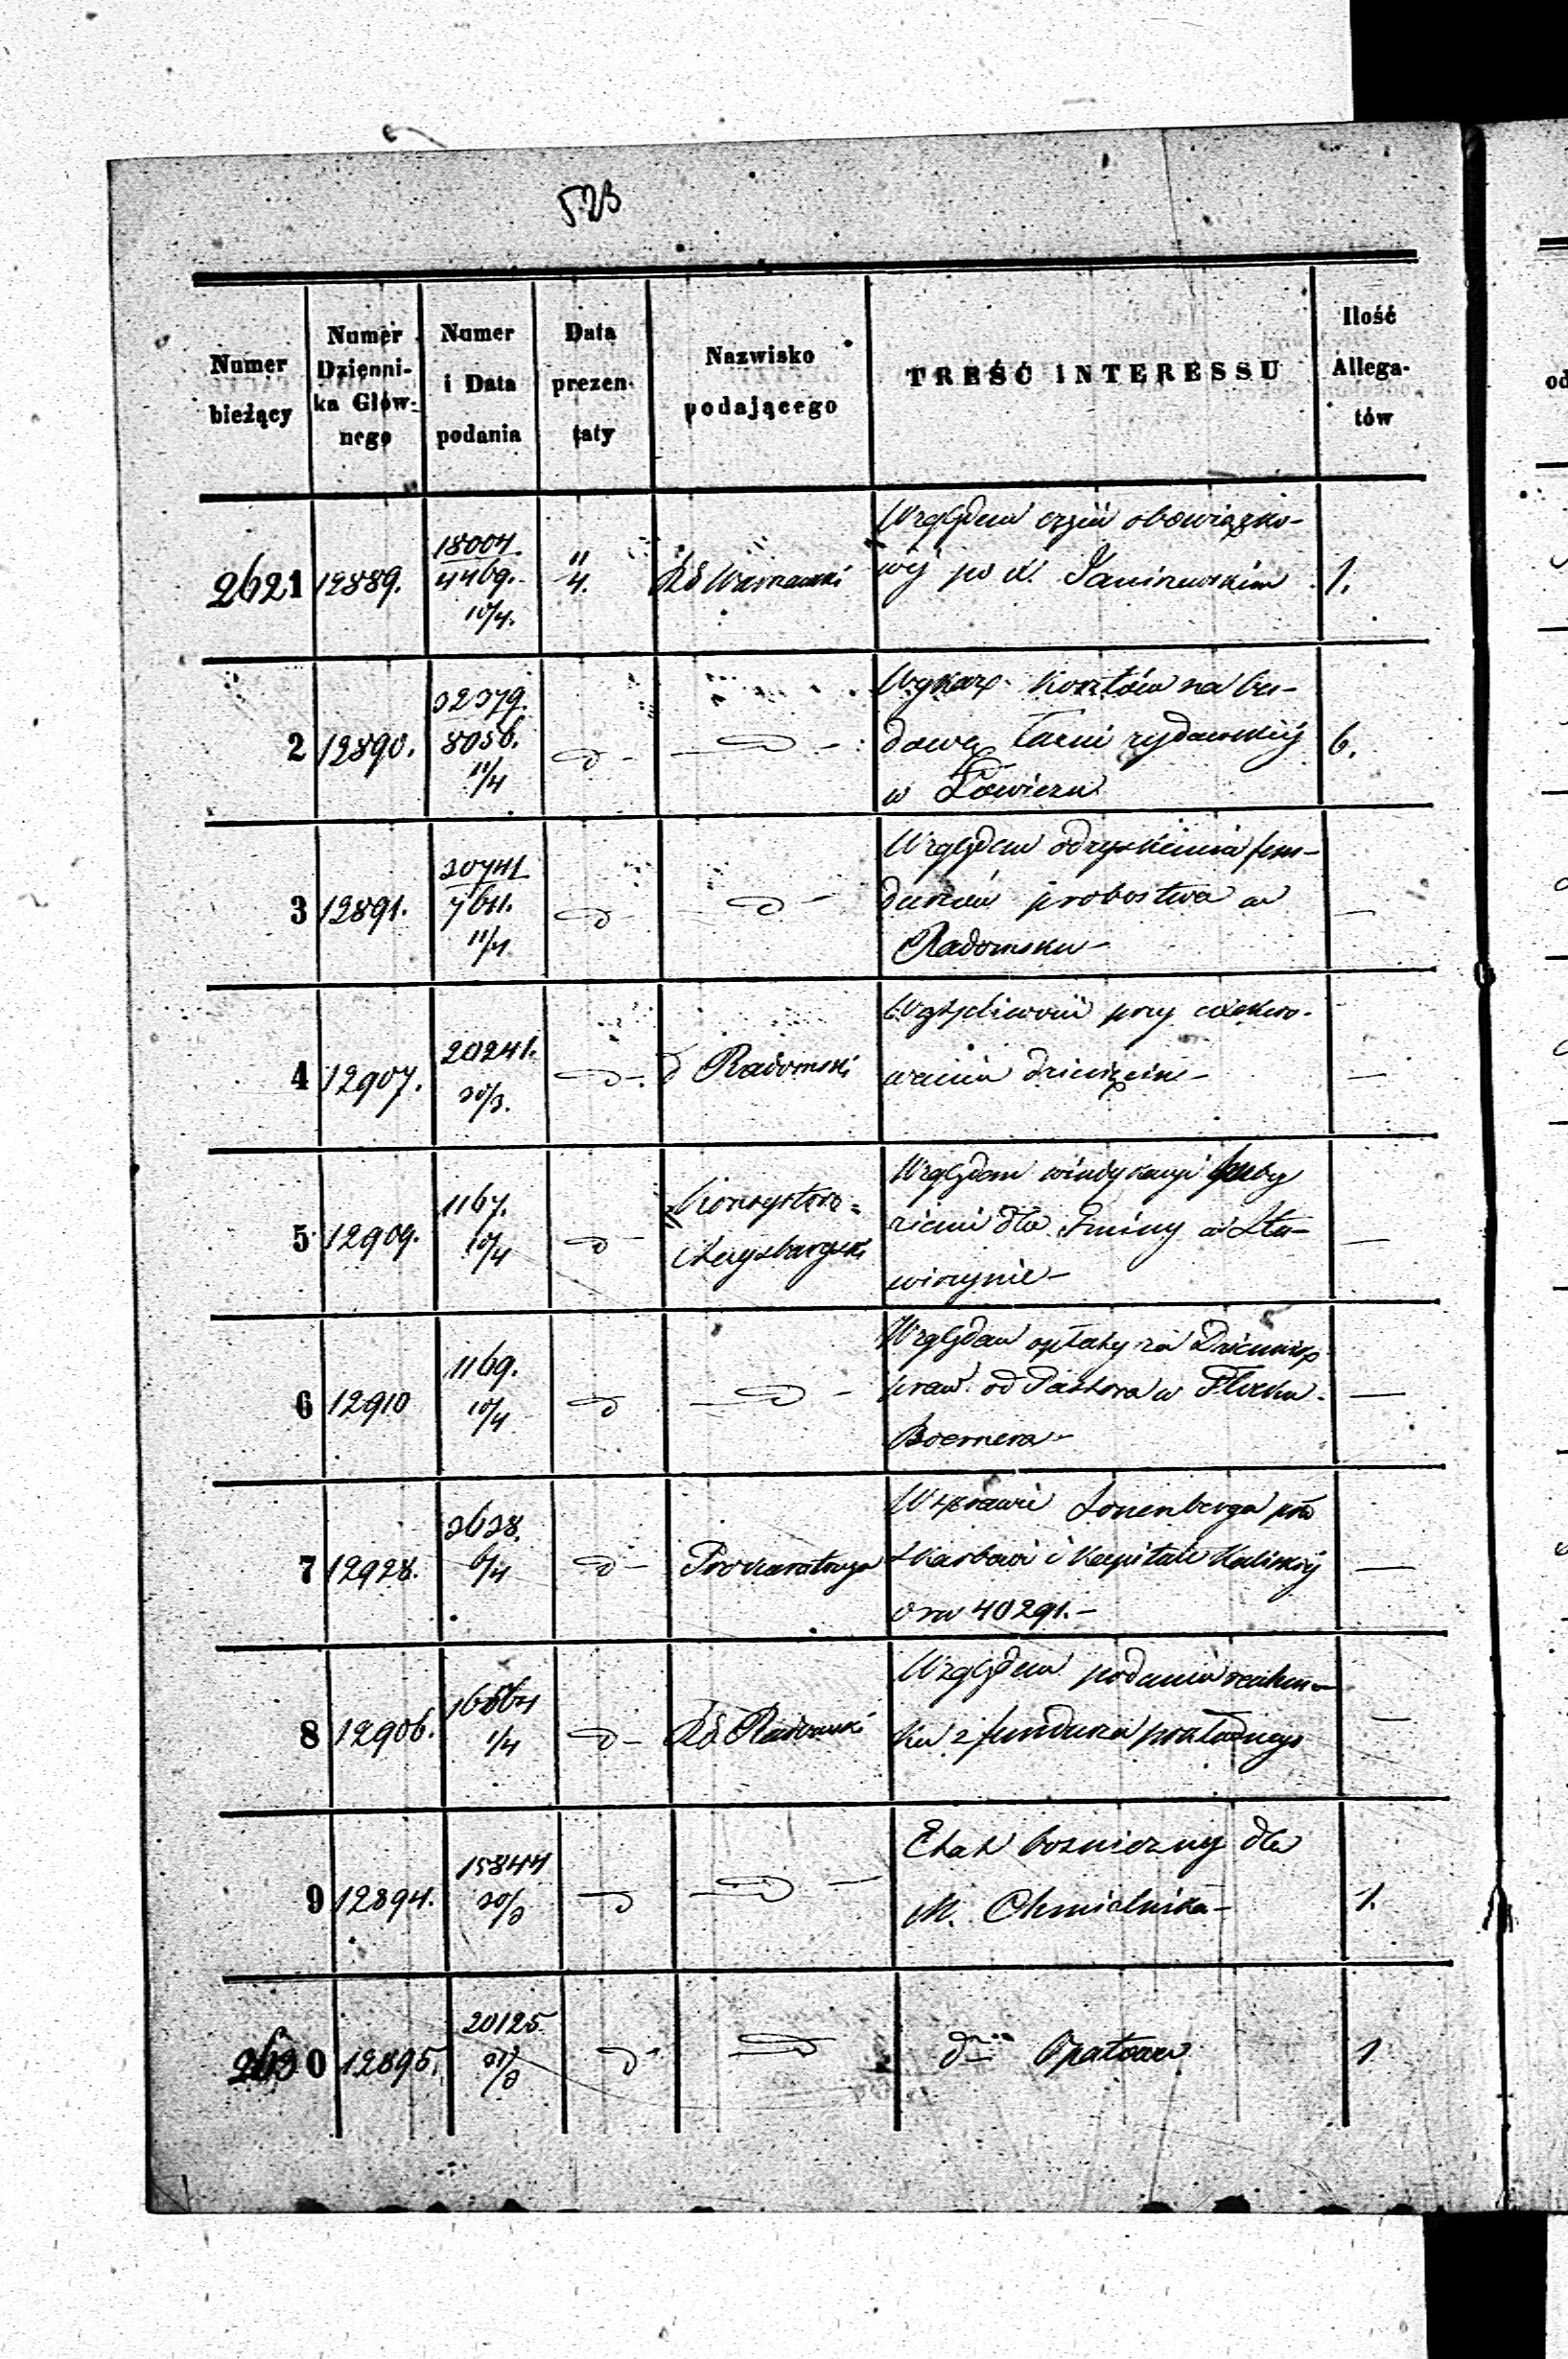 523
Numer bieżący
Numer Dzienni-ka Głów-nego
Numer i Data podania
Data prezen-taty
Nazwisko podającego
TREŚĆ INTERESSU
Ilość Allega-tów
2621 12889. 18004. 4469. 10/4. 11/4. Rd Warszawski
Względem części obowiązko-
wéj po X. Janiszewskim 1.
2 12890. 32379. 8056. 11/4 d
Wykaz kosztów na bu-
dowę Łazni żydowskiéj 6.
w Łowiczu
3 12891. 30741 11/4 d d
Względem odzyskania fun-
duszów probostwa w
Radomsku
4 12907. 20241. 30/3. d d Radomski
przy
dziesięcin
5 12909. 1167. 10/4 d Konsystorz Augsburgski
Względem windykacyi
ziemi dla Gminy w Sta-
wiszynie
6 12910 1169. 10/4 d d
Względem opłaty za Dziennik
praw od Pastora w Płocku
Boernera
7 12928. 3628. 6/4 d Prokuratorya
W sprawie Sonenberga pko
Skarbowi i Kapitule Kaliskiéj
o rs 40291.
8 12906. 16864 1/4 d Rd Radomski
Względem podania rachun-
ku z funduszu pokładnego
9 12894. 15844 30/3 d d
Etat bożniczny dla
M. Chmielnika 1.
2630 12895. 20125 31/3 d d
dtto Opatowa 1